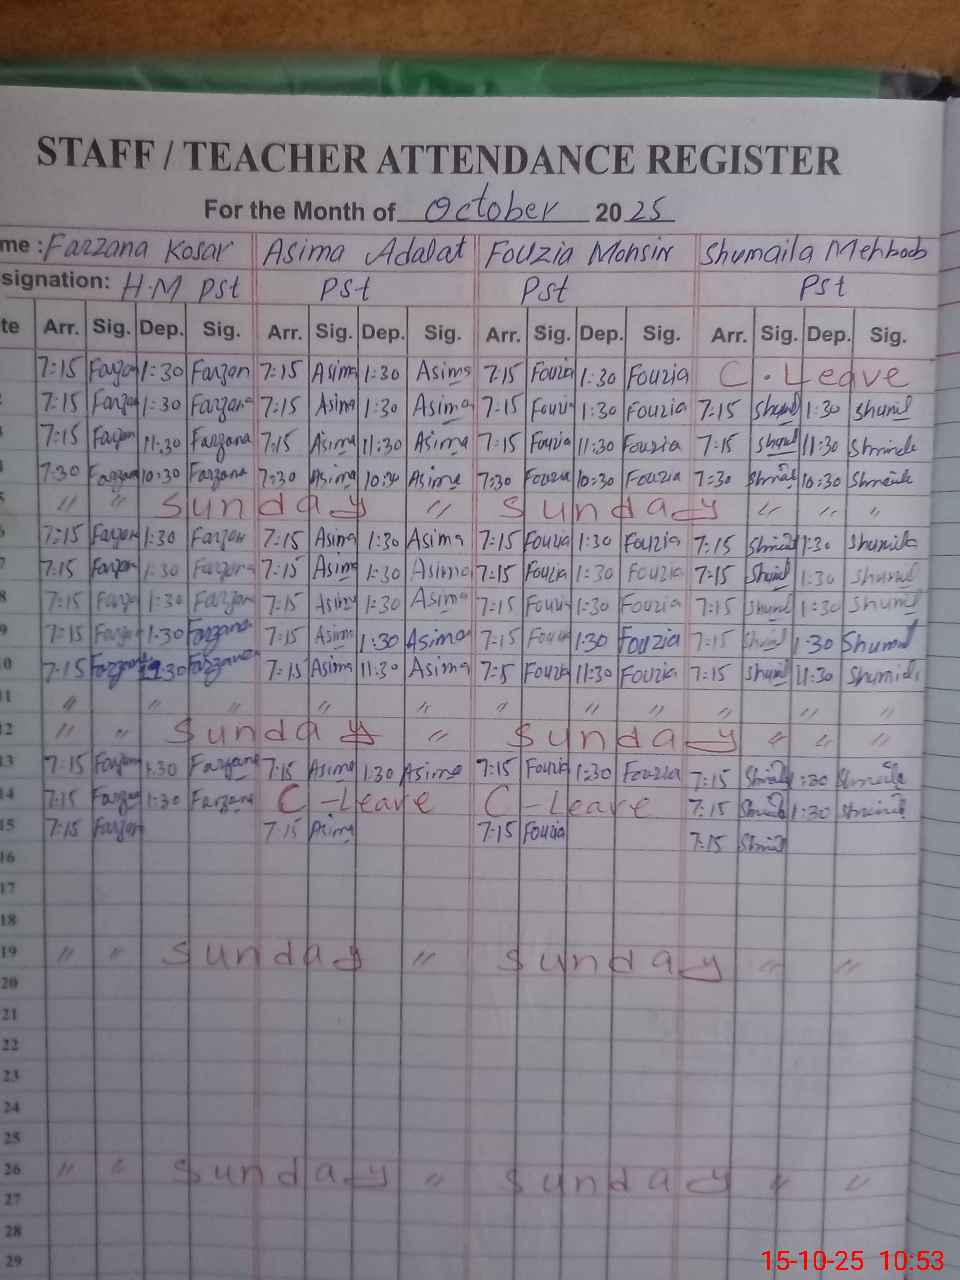 STAFF / TEACHER ATTENDANCE REGISTER
For the Month of October 2025
me : Farzana Kosar Asima Adalat Fouzia Mohsin Shumaila Mehboob
signation: H.M Pst Pst Pst Pst
te Arr. Sig. Dep. Sig. Arr. Sig. Dep. Sig. Arr. Sig. Dep. Sig. Arr. Sig. Dep. Sig.
7:15 Farzan 1:30 Farzan 7:15 Asima 1:30 Asima 7:15 Fouzia 1:30 Fouzia C. Leave
7:15 Farzan 1:30 Farzana 7:15 Asima 1:30 Asima 7:15 Fouzi 1:30 Fouzia 7:15 Shumil 1:30 Shumil
7:15 Farzan 11:30 Farzana 7:15 Asima 11:30 Asima 7:15 Fouzia 11:30 Fouzia 7:15 Shumil 11:30
7:30 Farzan 10:30 Farzana 7:30 Asima 10:30 Asima 7:30 Fouzia 10:30 Fouzia 7:30 10:30
5 " " Sunday " Sunday " " "
6 7:15 Farzan 1:30 Farzan 7:15 Asima 1:30 Asima 7:15 Fouzia 1:30 Fouzia 7:15 1:30 Shumila
7 7:15 Farzan 1:30 Farzana 7:15 Asima 1:30 Asima 7:15 Fouzia 1:30 Fouzia 7:15 Shumil 1:30 Shumil
8 7:15 Farza 1:30 Farzan 7:15 Asima 1:30 Asima 7:15 Fouzi 1:30 Fouzia 7:15 Shumil 1:30 Shumil
9 7:15 Farza 1:30 Farzana 7:15 Asima 1:30 Asima 7:15 Fouzi 1:30 Fouzia 7:15 1:30 Shumil
0 7:15 Farzan 11:30 Farzana 7:15 Asima 11:30 Asima 7:15 Fouzia 11:30 Fouzia 7:15 Shumil 11:30 Shumil
11 " " " " " " " " " "
12 " " Sunday " Sunday " " "
13 7:15 Farzan 1:30 Farzana 7:15 Asima 1:30 Asima 7:15 Fouzia 1:30 Fouzia 7:15 1:30
14 7:15 Farzan 1:30 Farzana C-Leave C-Leave 7:15 1:30
15 7:15 Farzan 7:15 Asima 7:15 Fouzia 7:15
16
17
18
19 " " Sunday " Sunday " "
20
21
22
23
24
25
26 " " Sunday " Sunday " "
27
28
29
15-10-25 10:53